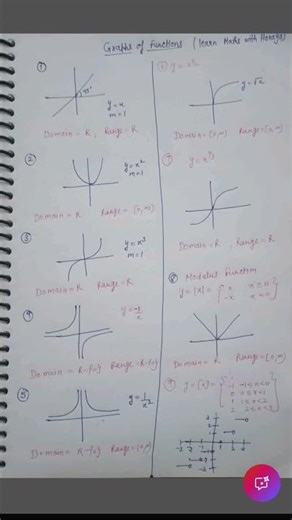 Graphs of Functions (Learn Maths with
①
45°
y = x
m = 1
Domain = R, Range = R
②
y = x²
m = 1
Domain = R Range = [0, ∞)
③
y = x³
m = 1
Domain = R Range = R
④
Domain = R-{0} Range = R-{0}
⑤
y = 1/x²
Domain = R-{0} Range = (0, ∞)
y = √x
Domain = [0, ∞) Range = [0, ∞)
⑦
Domain = R, Range = R
⑧ Modulus Function
y = |x| = { x x ≥ 0
-x x < 0
Domain = R Range = [0, ∞)
⑨ y = [x] = { -1 -1 ≤ x < 0
0 0 ≤ x < 1
1 1 ≤ x < 2
2 2 ≤ x < 3